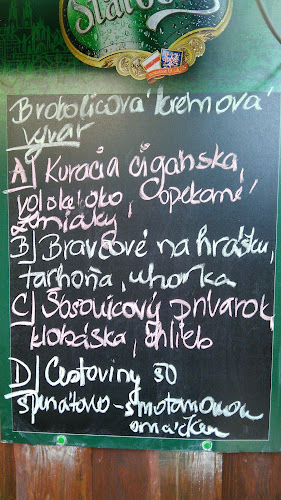 Brokolicová kremová
vývar
A) Kuracia ciganska,
volske oko, opekané
zemiaky,
B) Bravčové na hrášku,
tarhoňa, uhorka
C) Šošovicový prívarok,
klobáska, chlieb
D) Cestoviny so
špenátovo-smotanovou
omáčkou